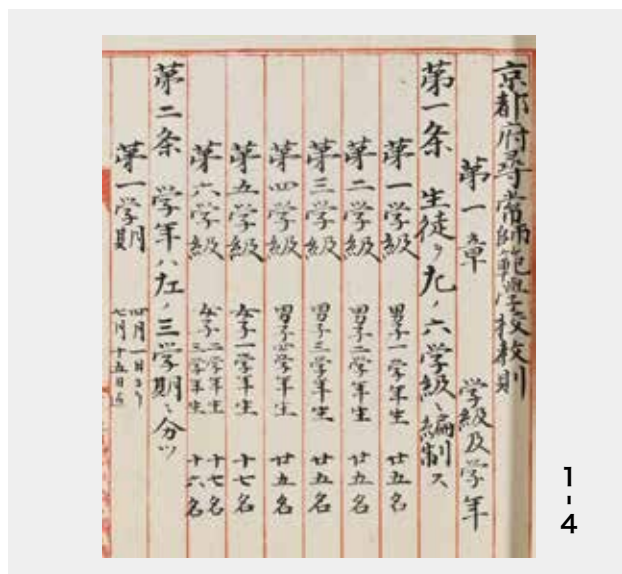 京都府尋常師範学校校則
第一章 学級及学年
第一条 生徒ヲ九ノ六学級ニ編制ス
第一学級 男子一学年生 廿五名
第二学級 男子二学年生 廿五名
第三学級 男子三学年生 廿五名
第四学級 男子四学年生 廿五名
第五学級 女子一学年生 十七名
第六学級 女子二学年生 十七名
女子三学年生 十六名
第二条 学年ハ左ノ三学期ニ分ツ
第一学期 四月一日ヨリ
七月十五日迄
1-4